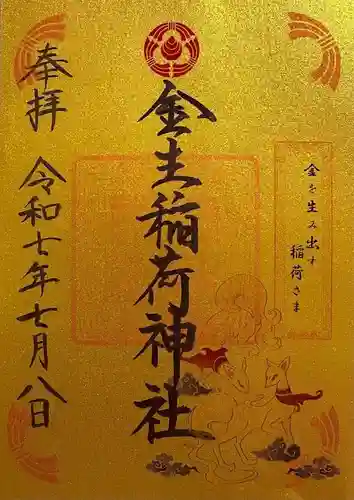 金を生み出す
稲荷さま
金生稲荷神社
奉拝
令和七年七月八日